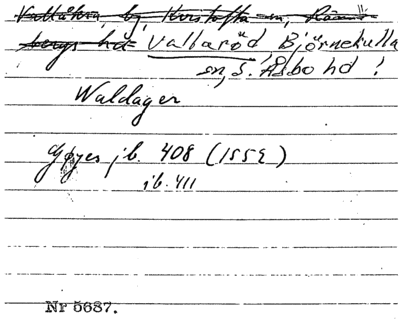 Vallåkra, by, Kvistofta sn, Rönne-
bergs hd Vallaröd, Björnekulla
sn, S. Åsbo hd!
Waldager
Gøyes jb. 408 (1552)
jb. 411
Nr 5687.